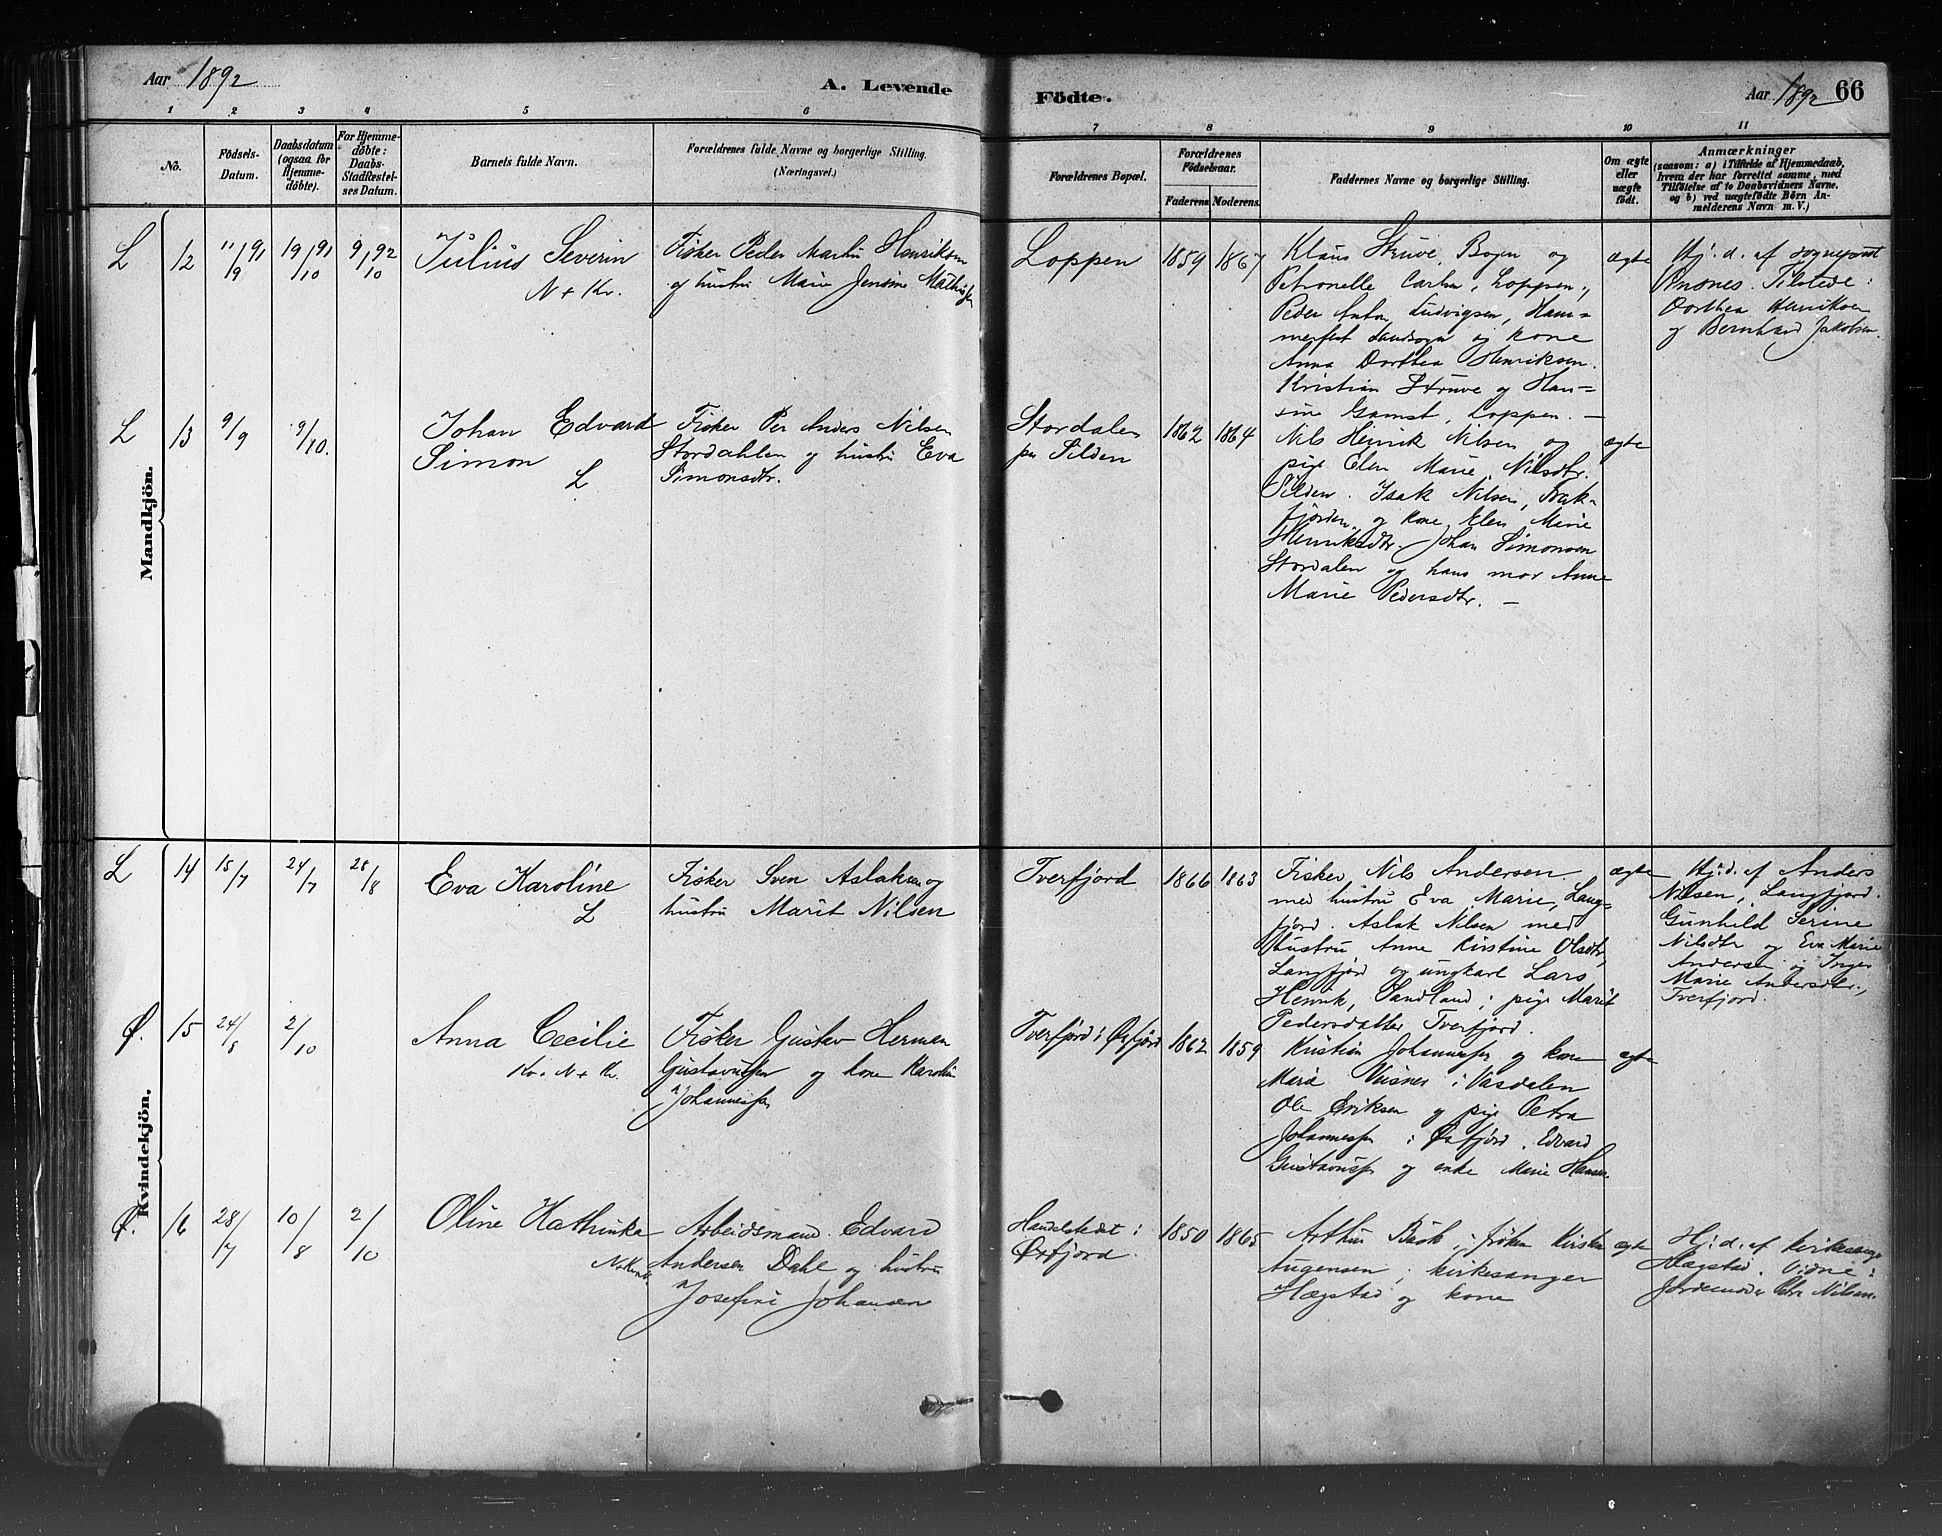 Aar 1892
A. Levende
Födte.
Aar 1892 66
1 2 3 4 5 6
7 8 9 10 11
No.
Födsels-
Datum.
Daabsdatum
(ogsaa for
Hjemme-
döbte).
For Hjemme-
döbte:
Daabs-
Stadfæstel-
ses Datum.
Barnets fulde Navn.
Forældrenes fulde Navne og borgerlige Stilling.
(Næringsvei.)
Forældrenes Bopæl.
Forældrenes
Födselsaar.
Faderens Moderens.
Faddernes Navne og borgerlige Stilling.
Om ægte
eller
uægte
födt.
Anmærkninger
(saasom: a) i Tilfælde af Hjemmedaab,
hvem der har forrettet samme, med
Tilföielse af to Daabsvidners Navne.
og b) ved uægtefödte Börn An-
melderens Navn m. V.)
Mandkjön.
L 12 11/9 91 19/10 91 9/10 92
Julius Severin
N + Kv.
Fisker Peder Martin Henriksen
og hustru Marie Jensine Mathisen
Loppen 1859 1867
Klaus Struve, Bogn og
Petronelle Carlsen, Loppen,
Peder Anton Ludvigsen, Ham=
merfest Landsogn og kone
Anna Dorthea Henriksen.
Kristian Struve og Han=
sine Gamst, Loppen. —
ægte
Hj: d. af sognepræst
Ansnes. Tilstede:
Dorthea Henriksen
og Bernhard Jakobsen
L 13 9/9 9/10.
Johan Edvard
Simon
L
Fisker Per Anders Nilsen
Stordahlen og hustru Eva
Simonsdtr.
Stordalen
pr Silden
1862 1864
Nils Henrik Nilsen og
pige Elen Marie Nilsdtr.
Silden. Isak Nilsen, Frak-
fjorden, og kone Elen Marie
Henriksdtr. Johan Simonsen
Stordalen og hans mor Anne
Marie Pedersdtr. —
ægte
Kvindekjön.
L 14 15/7 24/7 28/8
Eva Karoline
L
Fisker Sven Aslaksen og
hustru Marit Nilsen
Tverfjord 1866 1863
Fisker Nils Andersen
med hustru Eva Marie, Lang=
fjord. Aslak Nilsen med
hustru Anne Kirstine Olsdtr,
Langfjord og ungkarl Lars
Henrik, Sandland; pige Marit
Pedersdatter Tverfjord.
ægte
Hj: d. af Anders
Nilsen, Langfjord.
Gunhild Serine
Nilsdtr og Eva Marie
Andersen og Inger
Marie Andersdtr.,
Tverfjord.
Ø. 15 24/8 2/10
Anna Cecilie
Kv. N + K.
Fisker Gustav Herman
Gustavusen og kone Karolin
Johannessen
Tverfjord i Øxfjord 1862 1859
Kristian Johannessen og kone
Maria i Vasdalen
Ole Eriksen og pige Petra
Johannessen i Øxfjord. Edvard
Gustavusen og enke Marie Hansen
ægte
Ø. 16 28/7 10/8 2/10
Oline Kathinka
Arbeidsmand Edvard
Andersen Dahl og hustru
Josefine Johansen
Handelstedet i
Øxfjord.
1850 1865
Arthur Buck, frøken Kirsten
Augensen, kirkesanger
Hægstad og kone
ægte
Hj: d. af kirkesanger
Hægstad. Vidne:
Jordemoder Petra Nilsen.